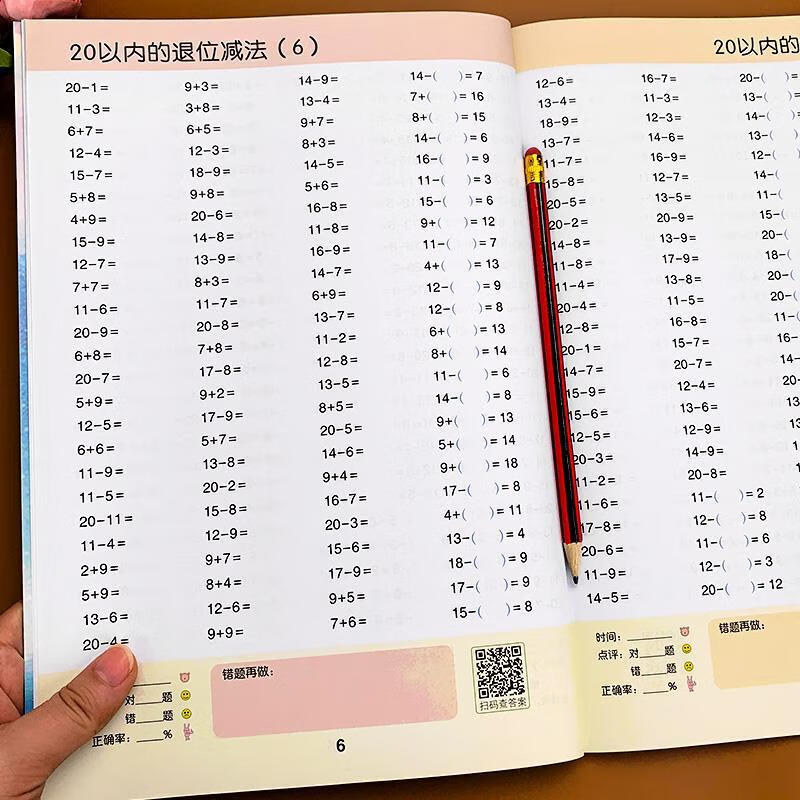 20以内的退位减法（6）
20-1= 9+3= 14-9= 14-( )=7
11-3= 3+8= 13-4= 7+( )=16
6+7= 6+5= 9+7= 8+( )=15
12-4= 12-3= 8+3= 14-( )=6
15-7= 18-9= 14-5= 16-( )=9
5+8= 9+8= 5+6= 11-( )=3
4+9= 20-6= 16-8= 15-( )=6
15-9= 14-8= 11-8= 9+( )=12
12-7= 13-9= 16-9= 11-( )=7
7+7= 8+3= 14-7= 4+( )=13
11-6= 11-7= 6+9= 12-( )=9
20-9= 20-8= 13-7= 12-( )=8
6+8= 7+8= 11-2= 6+( )=13
20-7= 17-8= 12-8= 8+( )=14
5+9= 9+2= 13-5= 11-( )=6
12-5= 17-9= 8+5= 14-( )=8
6+6= 5+7= 20-5= 9+( )=13
11-9= 13-8= 14-6= 5+( )=14
11-5= 20-2= 9+4= 9+( )=18
20-11= 15-8= 16-7= 17-( )=8
11-4= 12-9= 20-3= 4+( )=11
2+9= 9+7= 15-6= 13-( )=4
5+9= 8+4= 17-9= 18-( )=9
13-6= 12-6= 9+5= 17-( )=9
20-4= 9+9= 7+6= 15-( )=8
对____题
错____题
正确率：____%
错题再做：
扫码查答案
6
20以内的
12-6= 16-7= 20-(
13-4= 11-3= 13-(
18-9= 12-7= 14-(
13-7= 14-6= 13-(
11-7= 16-9= 12-(
15-8= 12-7= 14-(
20-5= 13-5= 11-(
20-2= 20-9= 15-(
14-8= 13-9= 20-(
11-8= 17-9= 18-(
11-4= 13-8= 20-(
20-4= 11-5= 20-(
12-8= 16-8= 11-(
20-1= 15-7= 16-
14-7= 20-7= 14-
15-9= 12-4= 20-
15-6= 13-6= 13
12-5= 12-9= 12
20-3= 14-9= 13
11-2= 20-8=
11-6= 11-( )=2
17-8= 12-( )=8
20-6= 11-( )=6
11-9= 12-( )=3
14-5= 20-( )=12
时间：____
点评：对____题
错____题
正确率：____%
错题再做：